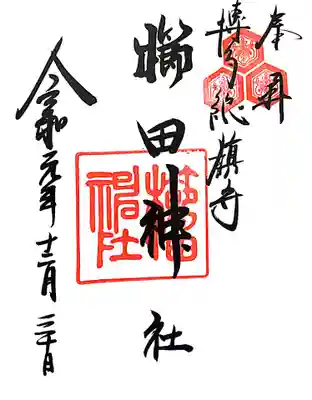 奉拝
博多総鎮守
櫛田神社
令和元年十二月二十日